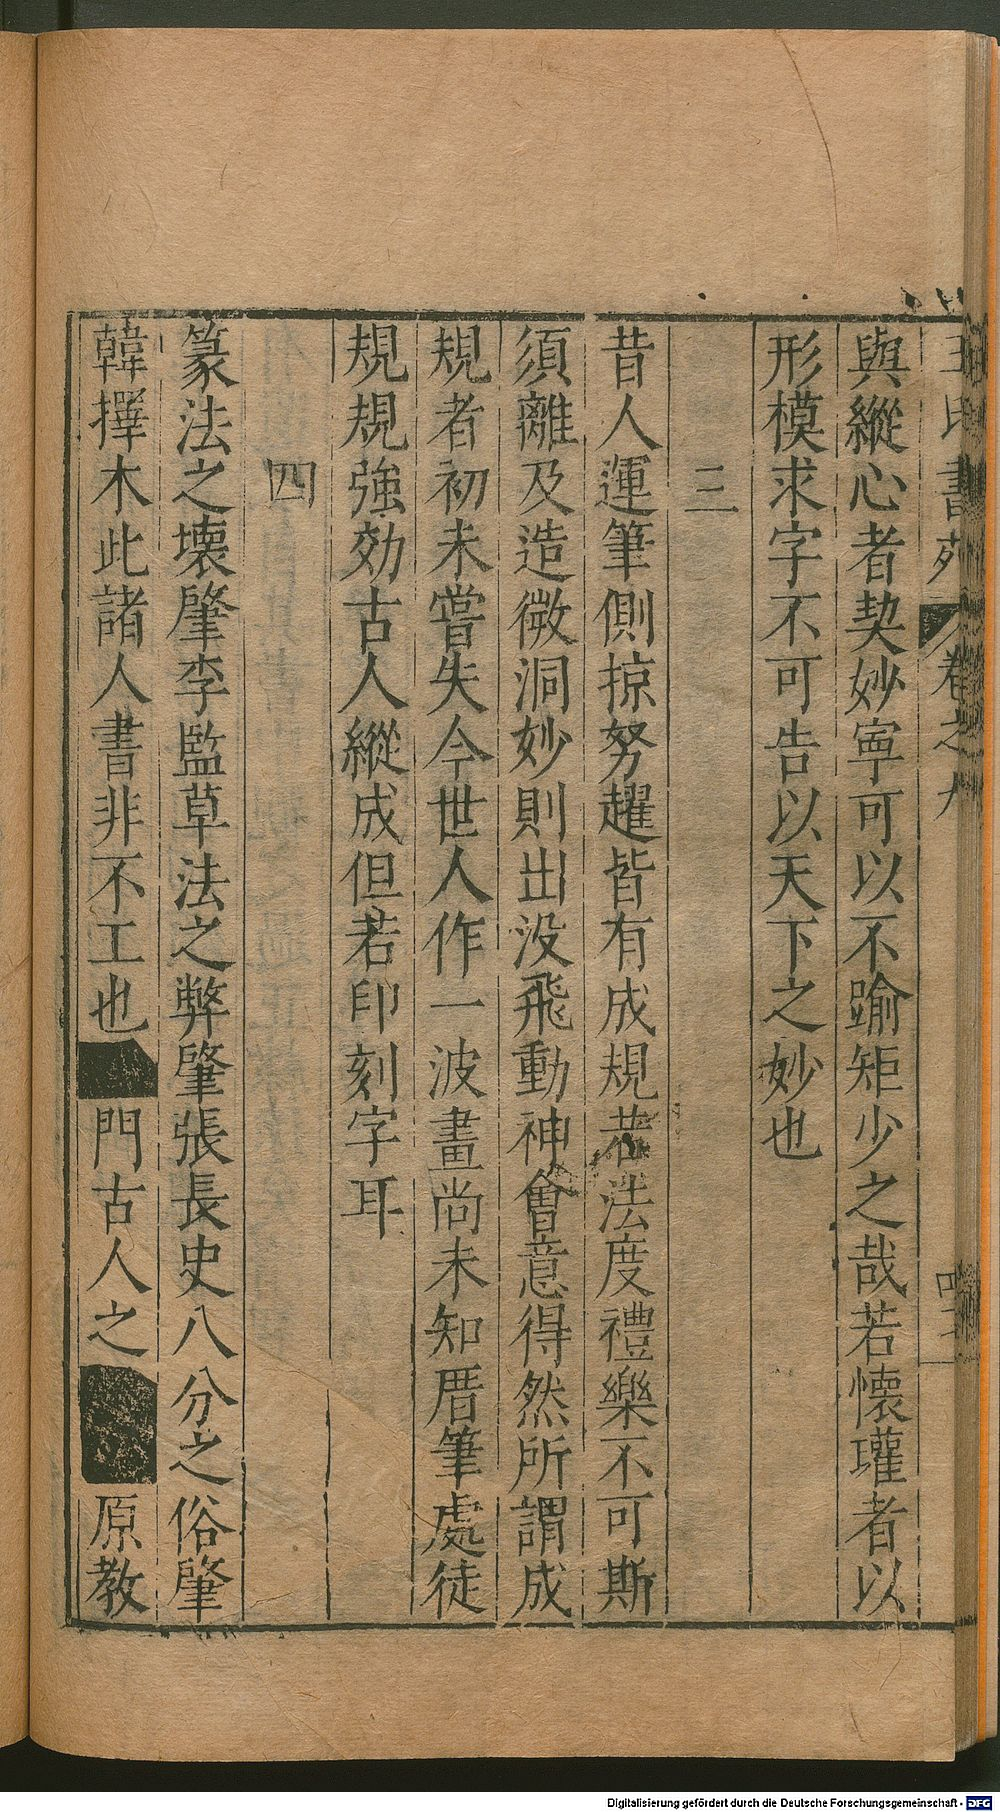 王氏書苑 卷之九
與縱心者契妙寧可以不踰矩少之哉若懷瓘者以
形模求字不可告以天下之妙也
三
昔人運筆側掠努趯皆有成規若法度禮樂不可斯
須離及造微洞妙則出没飛動神會意得然所謂成
規者初未嘗失今世人作一波畫尚未知厝筆處徒
規規強効古人縱成但若印刻字耳
四
篆法之壊肇李監草法之弊肇張長史八分之俗肇
韓擇木此諸人書非不工也
門古人之
原教
Digitalisierung gefördert durch die Deutsche Forschungsgemeinschaft - DFG